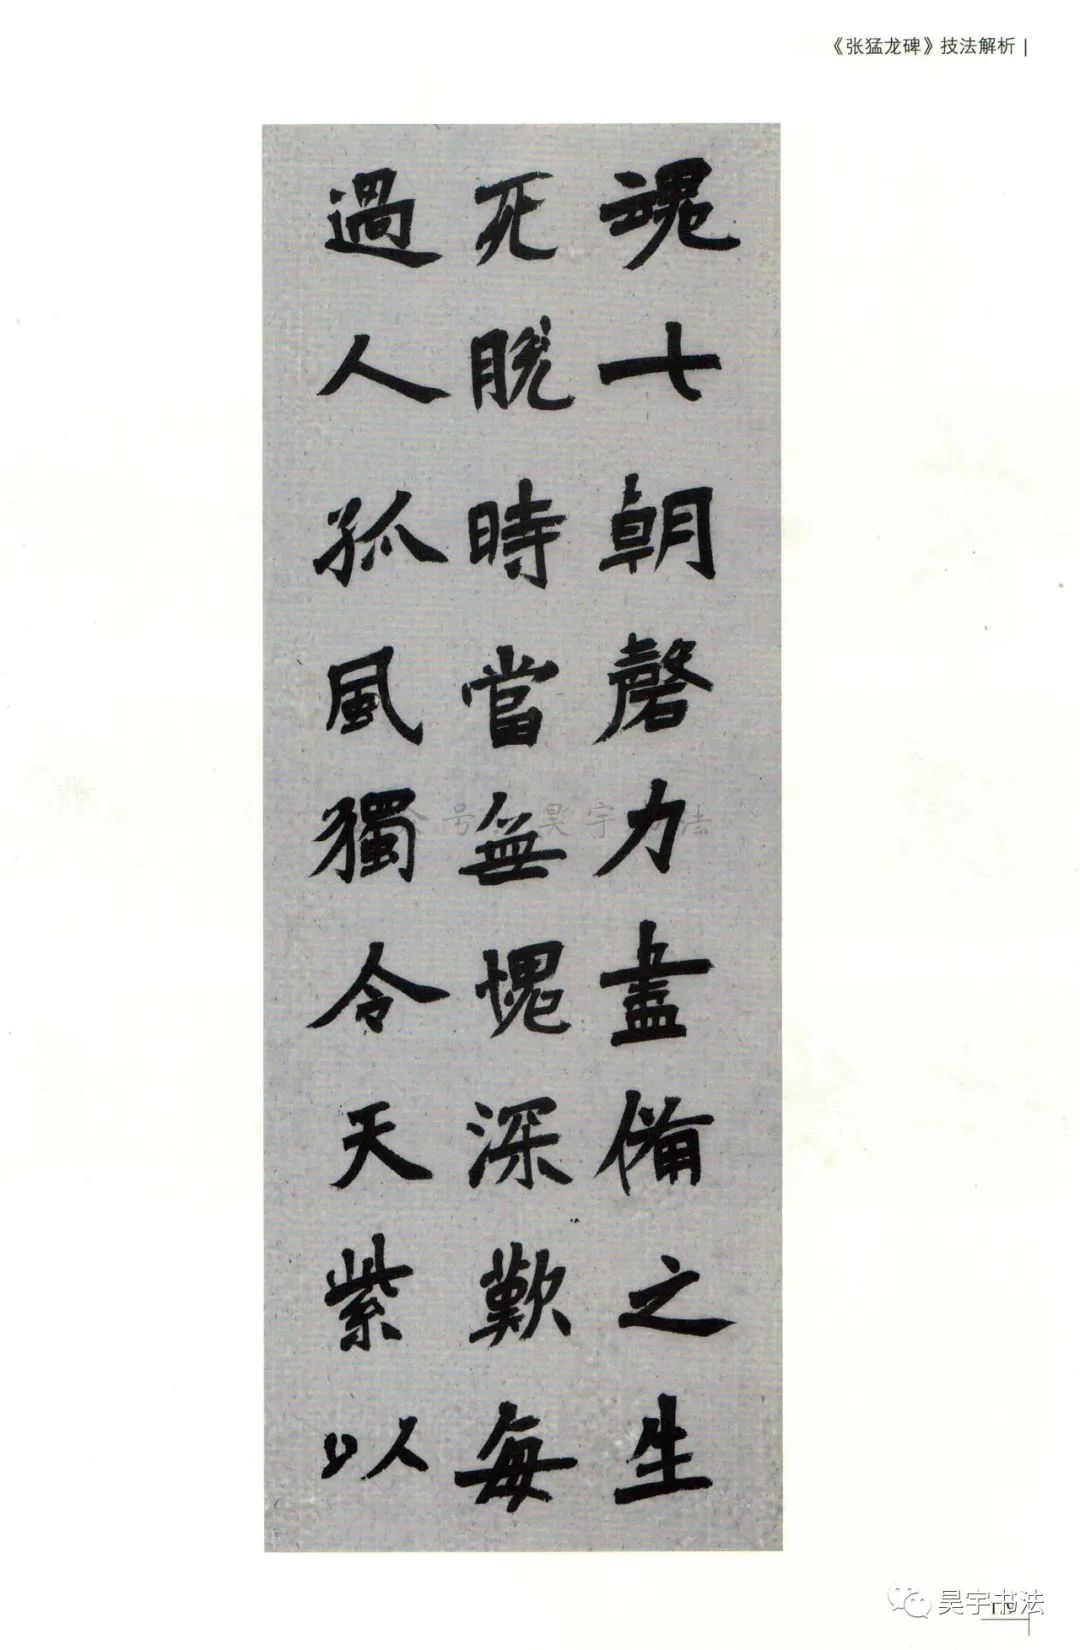 《张猛龙碑》技法解析
魂七朝磬力盡備之生
死脫時當無愧深歎每
過人孤風獨令天紫以
号 昊宇 法
昊宇书法